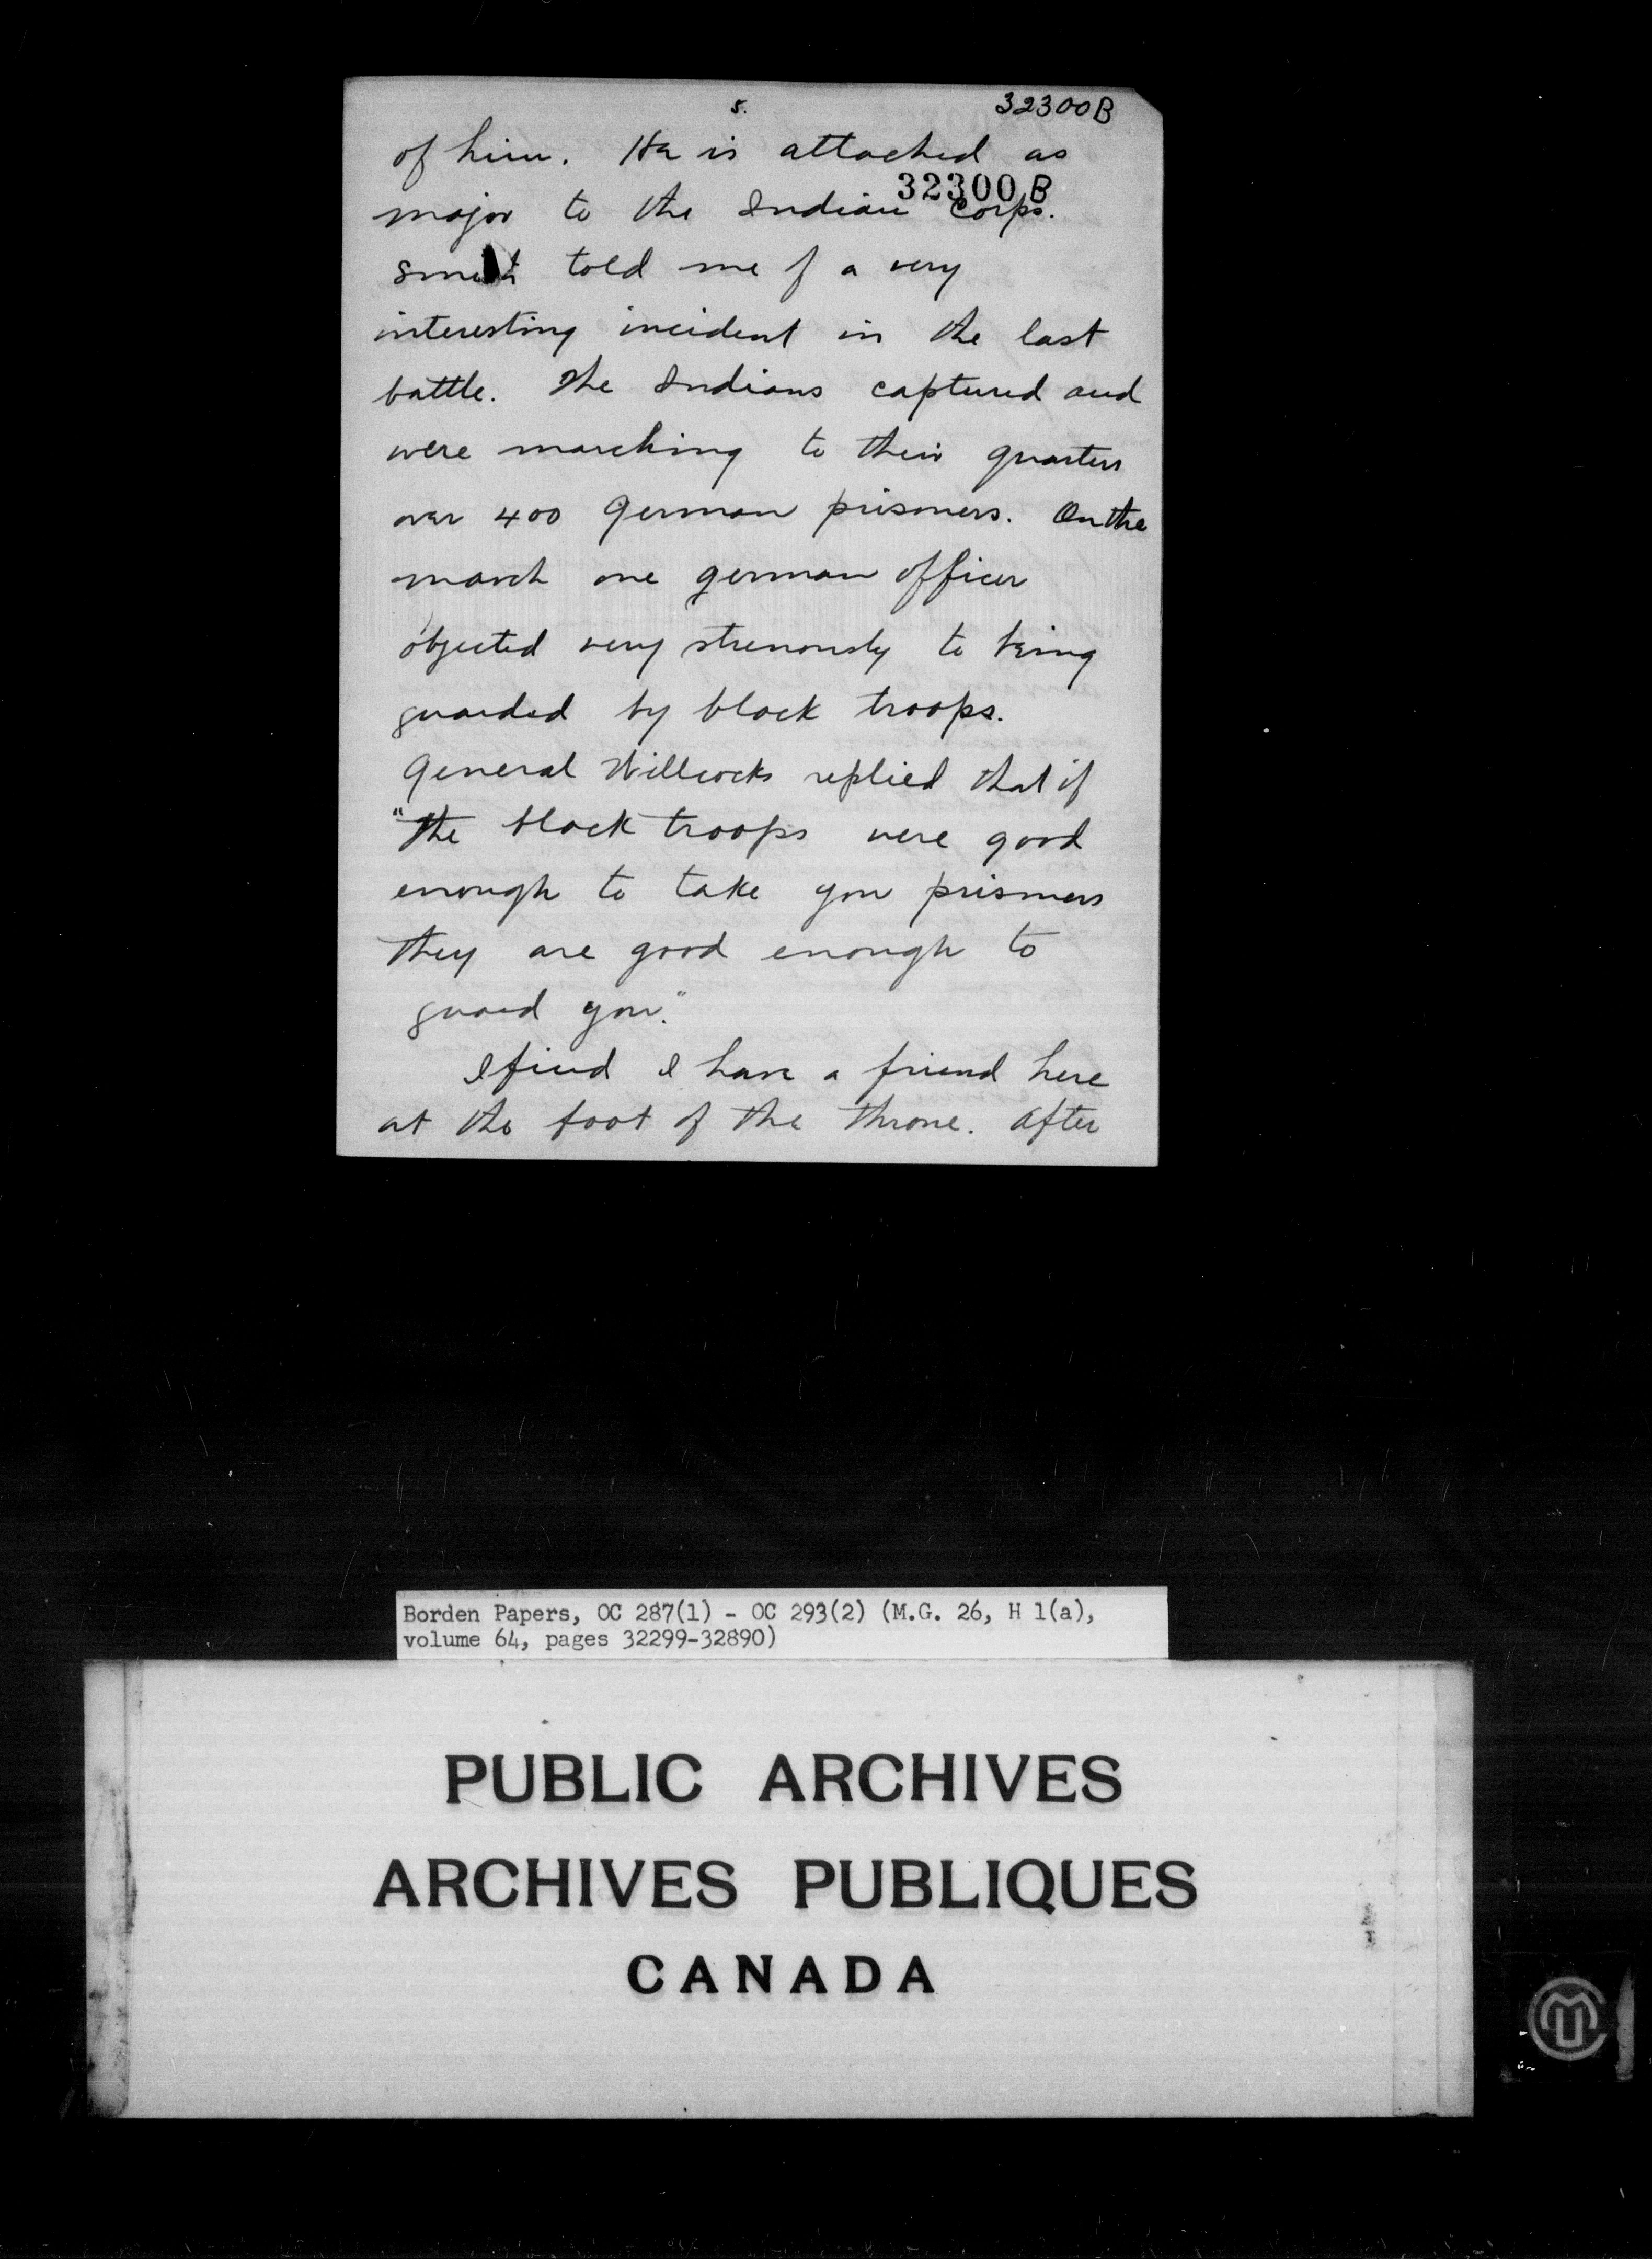 5.
32300B
of him. He is attached as
32300 B
major to the Indian Corps.
Smith told me of a very
interesting incident in the last
battle. The Indians captured and
were marching to their quarters
over 400 German prisoners. On the
march one german officer
objected very strenously to being
guarded by black troops.
General Willcocks replied that if
"the black troops were good
enough to take you prisoners
they are good enough to
guard you."
I find I have a friend here
at the foot of the throne. After
Borden Papers, OC 287(1) - OC 293(2) (M.G. 26, H 1(a),
volume 64, pages 32299-32890)
PUBLIC ARCHIVES
ARCHIVES PUBLIQUES
CANADA